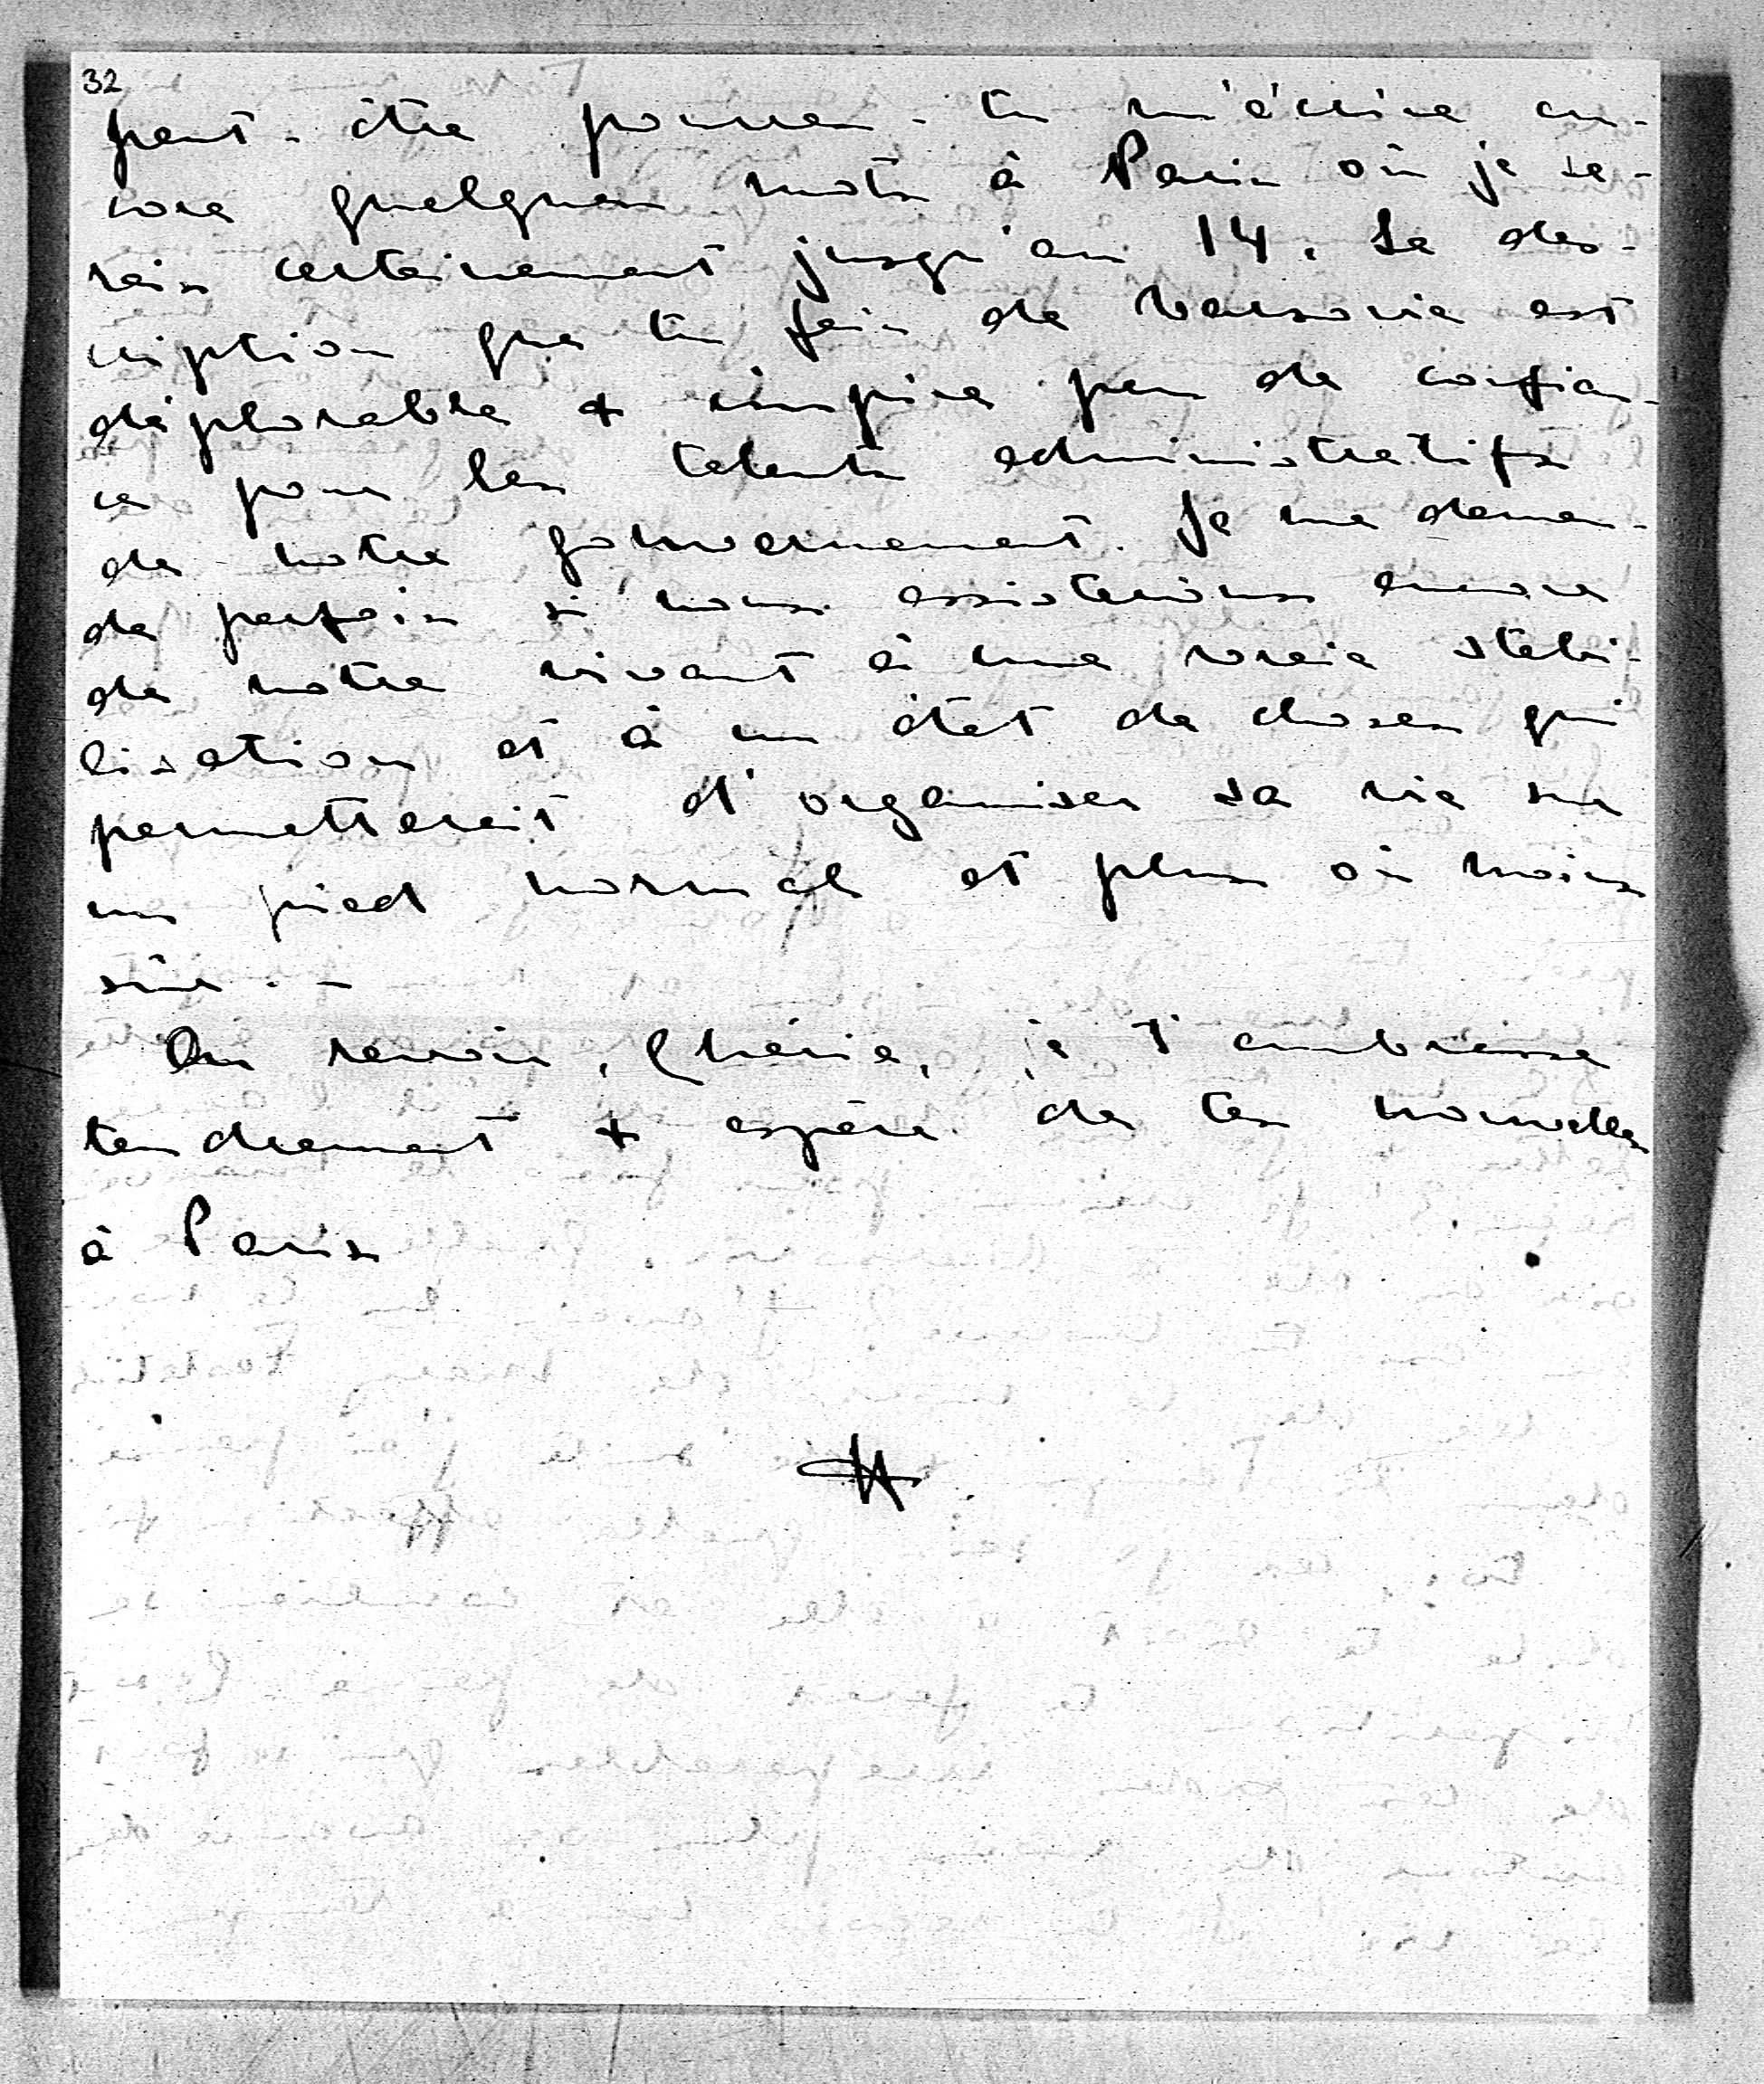 32
peut-être pourras-tu m'écrire en-
core quelques mots à Paris où je se-
rais certainement jusqu'au 14. La des-
cription que tu fais de Varsovie est
déplorable & inspire peu de confian-
ce pour les talents administratifs
de notre gouvernement. Je me deman-
de parfois si nous assisterions encore
de notre vivant à une vraie stabi-
lisation et à un état de choses qui
permetterait d'organiser sa vie sur
un pied normal et plus où moins
sûr. -
Au revoir, Chérie, je t'embrasse
tendrement & espère de tes nouvelles
à Paris